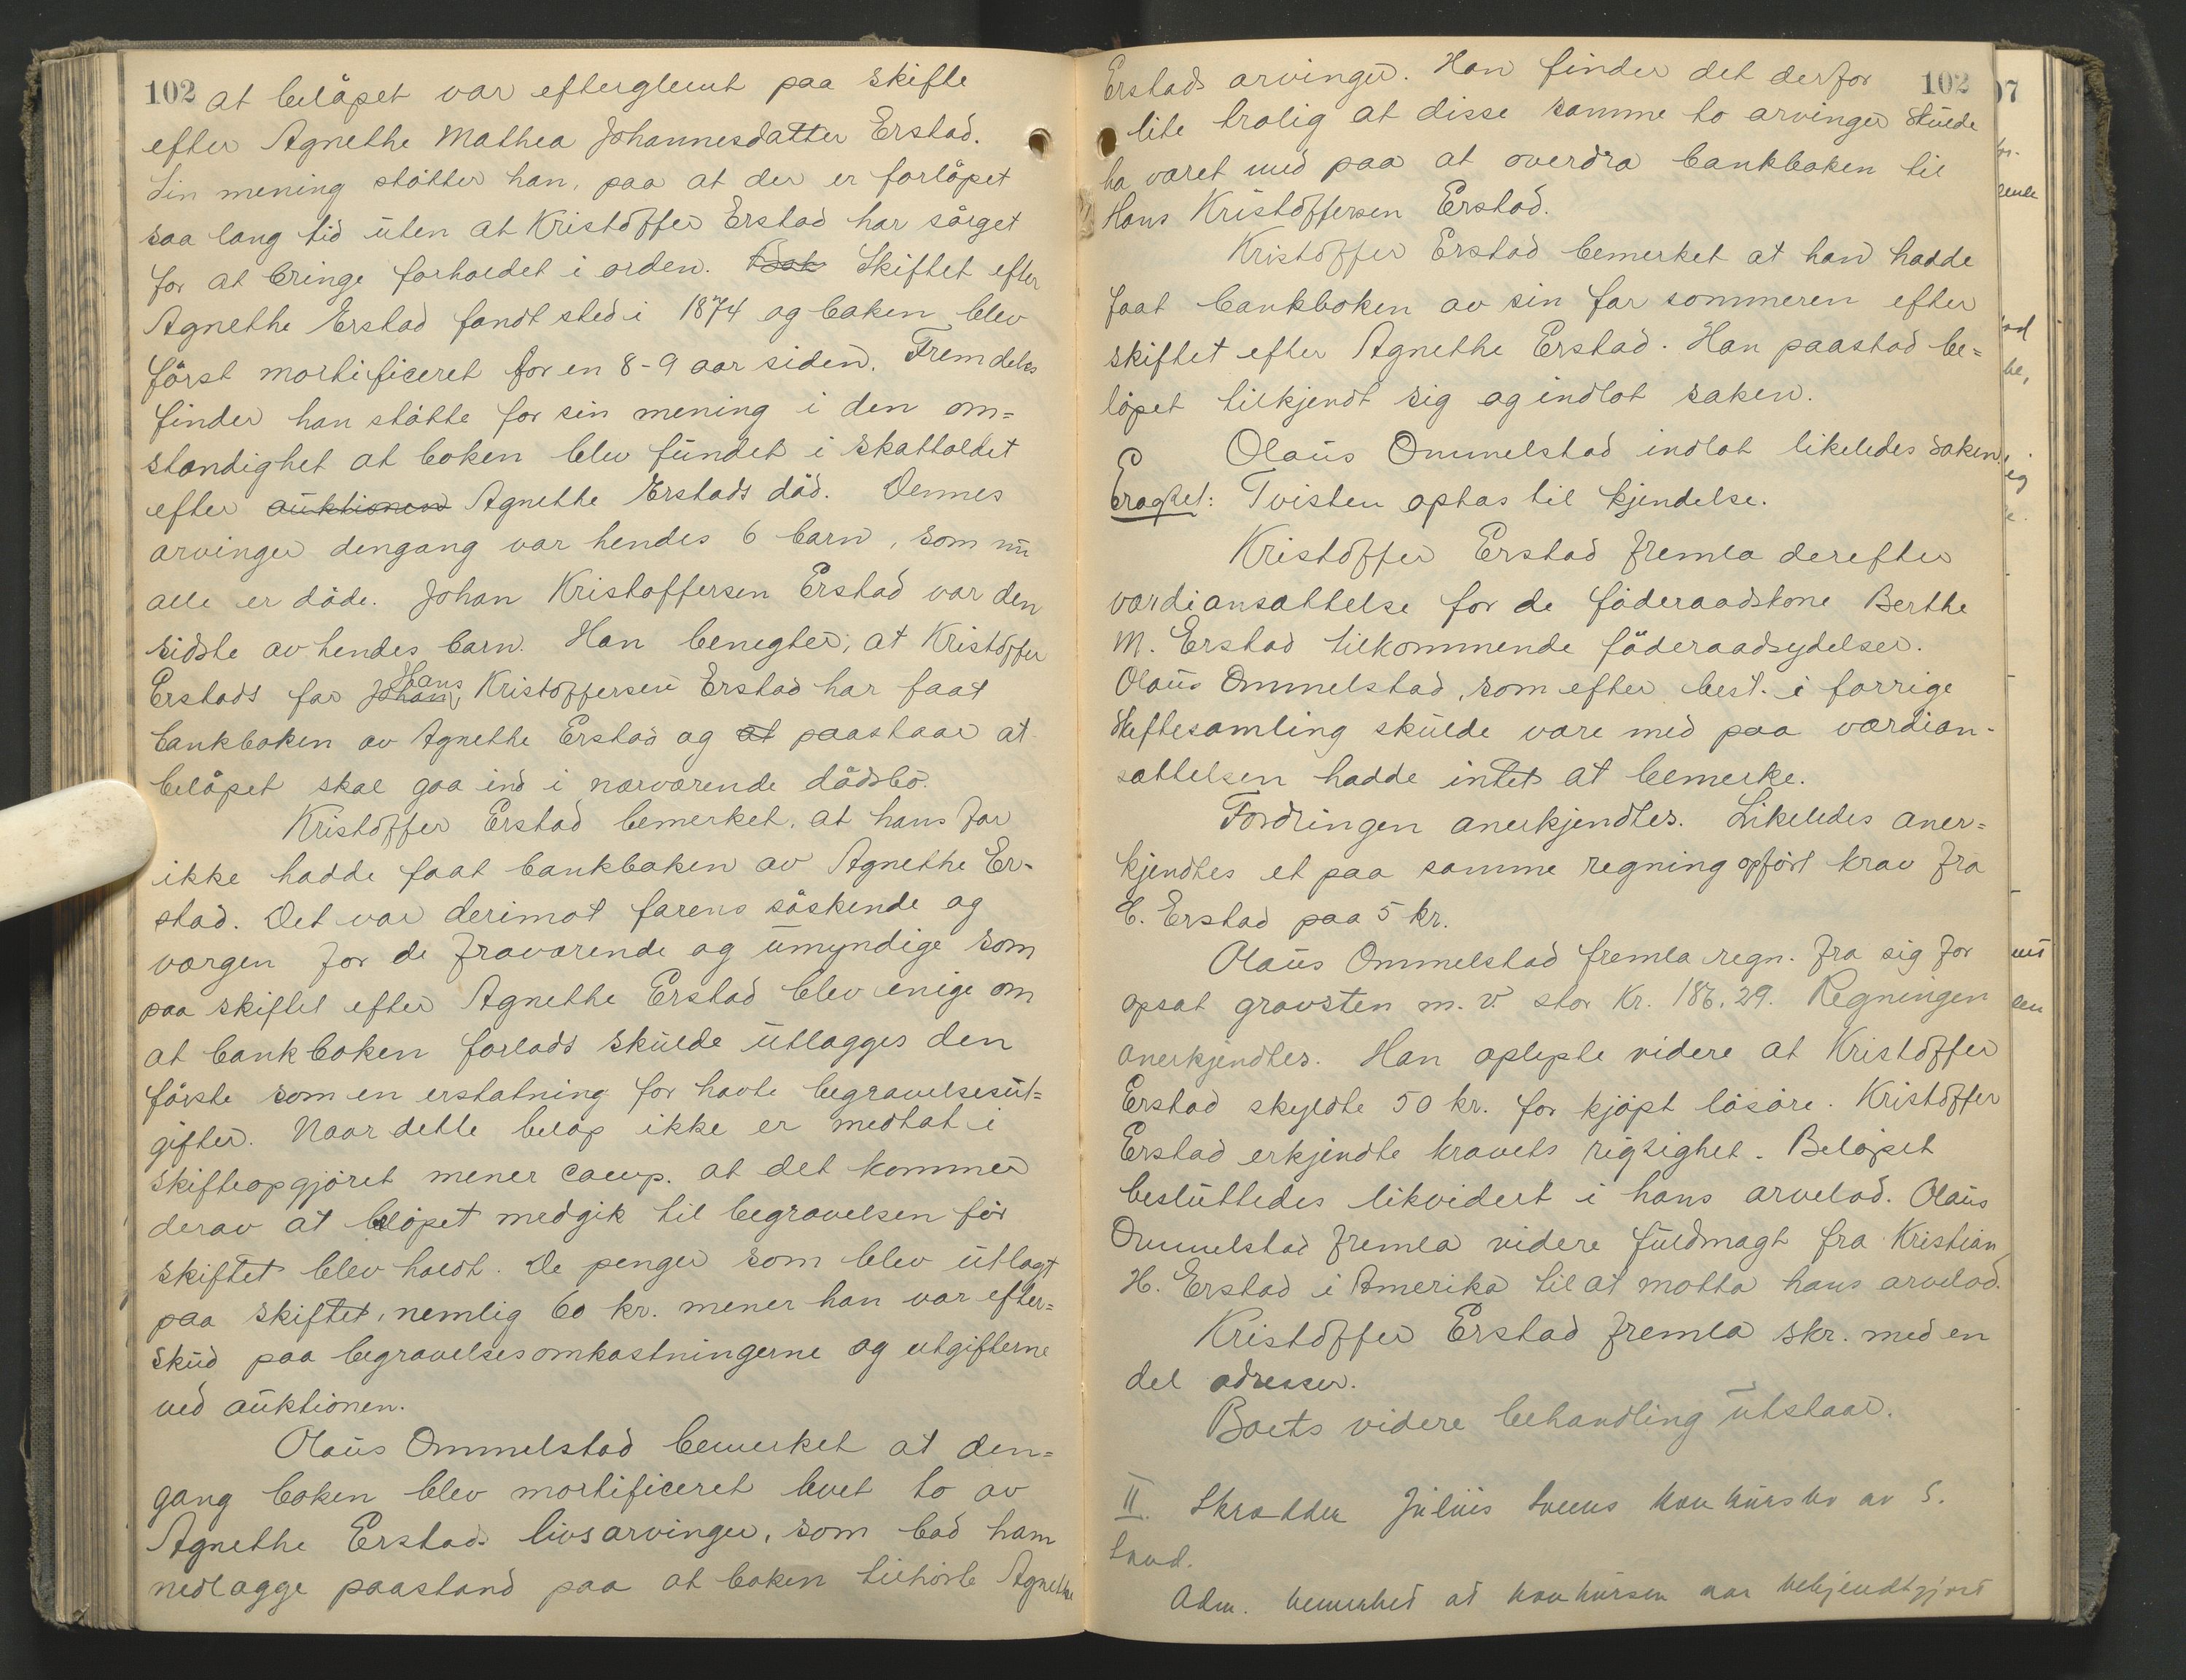 102 at belöpet var efterglemt paa skifte
efter Agnethe Mathea Johannesdatter Erstad.
Sin mening stötter han, paa at der er forlöpet
saa lang tid uten at Kristoffer Erstad har sörget
for at bringe forholdet i orden. Bok Skiftet efter
Agnethe Erstad fandt sted i 1874 og boken blev
först mortificeret for en 8-9 aar siden. Fremdeles
finder han stötte for sin mening i den om=
stændighet at boken blev fundet i skattoldet
efter auktionen Agnethe Erstads död. Dennes
arvinger dengang var hendes 6 barn, som nu
alle er döde. Johan Kristoffersen Erstad var den
sidste av hendes barn. Han benegter, at Kristoffer
Erstads far Johan Hans Kristoffersen Erstad har faat
bankboken av Agnethe Erstad og at paastaar at
belöpet skal gaa ind i nærværende dödsbo.
Kristoffer Erstad bemerket, at hans far
ikke hadde faat bankboken av Agnethe Er-
stad. Det var derimot farens söskende og
vergen for de fraværende og umyndige som
paa skiftet efter Agnethe Erstad blev enige om
at bankboken forlods skulde utlægges den
förste som en erstatning for havte begravelsesut=
gifter. Naar dette belöp ikke er medtat i
skifteopgjöret mener comp. at det kommer
derav at belöpet medgik til begravelsen för
skiftet blev holdt. De penger som blev utlagt
paa skiftet, nemlig 60 kr. mener han var efter=
skud paa begravelsesomkostningerne og utgifterne
ved auktionen.
Olaus Ommelstad bemerket at den=
gang boken blev mortificeret levet to av
Agnethe Erstads livsarvinger, som bad ham
nedlægge paastand paa at boken tilhörte Agnethe
Erstads arvinger. Han finder det derfor 102
lite trolig at disse samme to arvinger skulde
ha været med paa at overdra bankboken til
Hans Kristoffersen Erstad.
Kristoffer Erstad bemerket at han hadde
faat bankboken av sin far sommeren efter
skiftet efter Agnethe Erstad. Han paastod be=
löpet tilkjendt sig og indlot saken.
Olaus Ommelstad indlot likeledes saken.
Eragtet: Tvisten optas til kjendelse.
Kristoffer Erstad fremla derefter
værdiansættelse for de föderaadskone Berthe
M. Erstad tilkommende föderaadsydelser.
Olaus Ommelstad, som efter best. i forrige
skiftesamling skulde være med paa værdian-
sættelsen hadde intet at bemerke.
Fordringen anerkjendtes. Likeledes aner=
kjendtes et paa samme regning opfört krav fra
C. Erstad paa 5 kr.
Olaus Ommelstad fremla regn. fra sig for
opsat gravsten m. v. stor kr. 186.29. Regningen
anerkjendtes. Han oplyste videre at Kristoffer
Erstad skyldte 50 kr. for kjöpt lösöre. Kristoffer
Erstad erkjendte kravets rigtighet. Belöpet
besluttedes likvidert i hans arvelod. Olaus
Ommelstad fremla videre fuldmagt fra Kristian
H. Erstad i Amerika til at motta hans arvelod.
Kristoffer Erstad fremla skr. med en
del adresser.
Boets videre behandling utstaar.
II. Skrædder Julius konkursbo av S.
Land.
Adm. bemerket at konkursen var bekjendtgjort